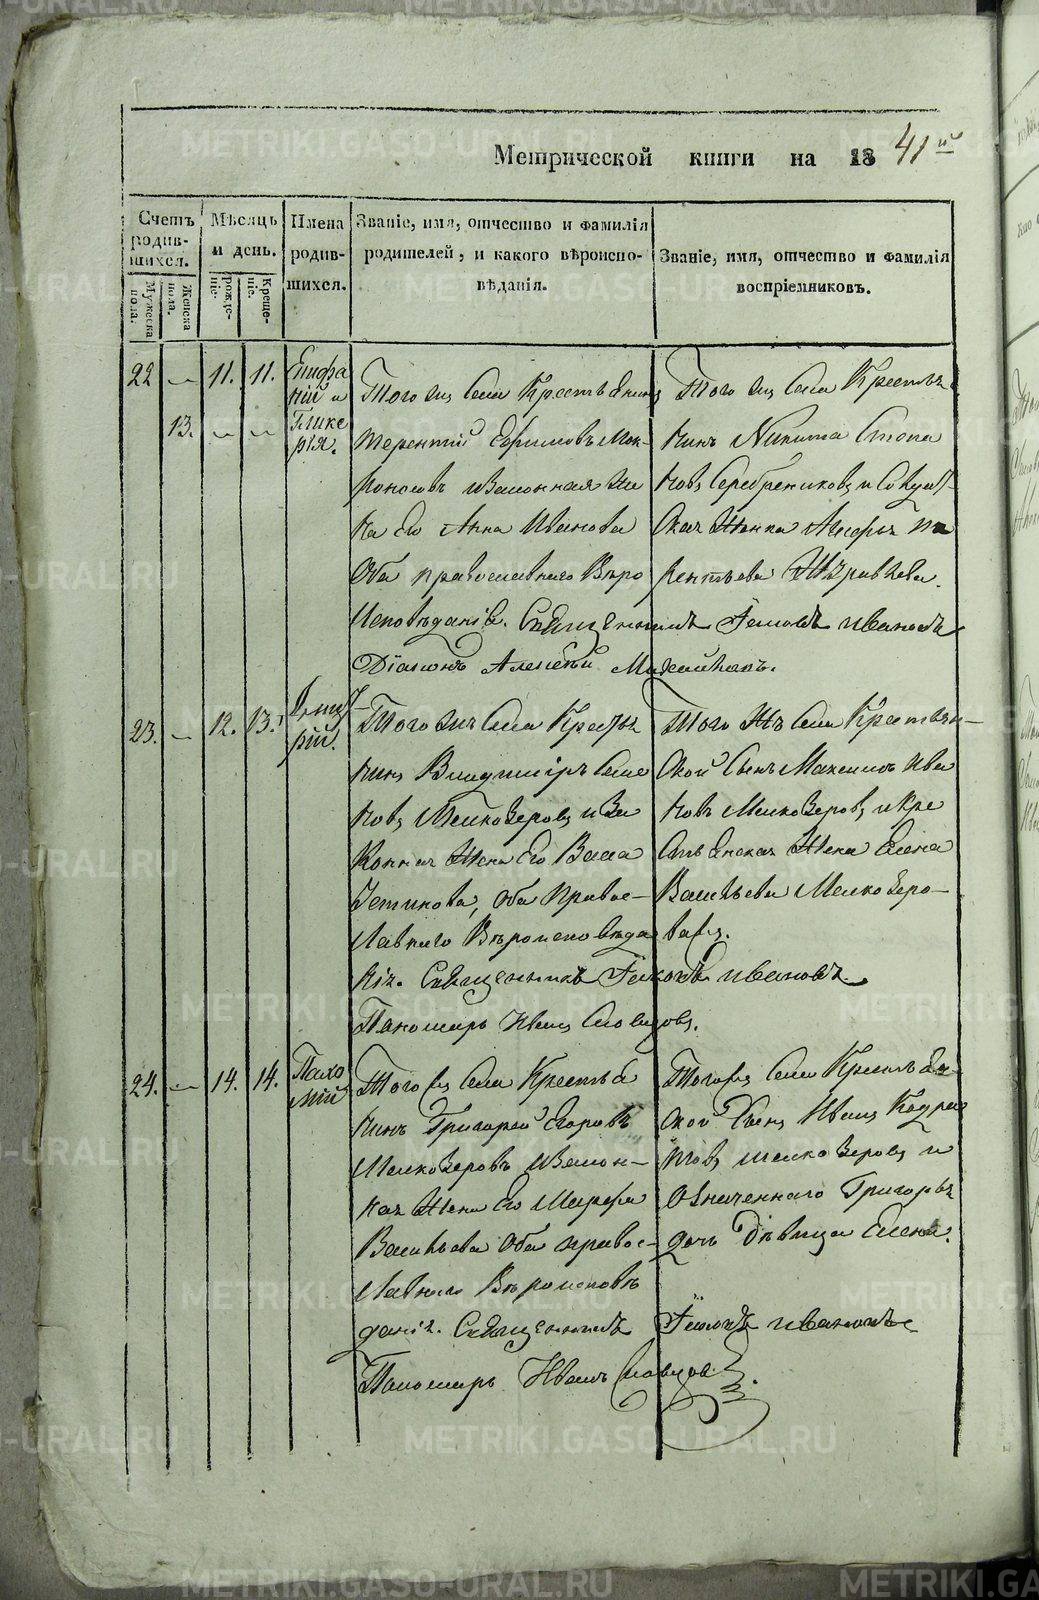 Метрической книги на 1841й
Счетъ родив-шихся.
Мужеска пола.
Женска пола.
Мѣсяцъ и день.
рожде-ніе.
Креще-ніе.
Имена родив-шихся.
Званіе, имя, отчество и фамилія
родителей, и какого вѣроиспо-
вѣданія.
Званіе, имя, отчество и фамилія
воспріемниковъ.
22 — 11. 11.
13. — —
Епифа
ній и
Глике
рія.
Того жъ Села Крестьянинъ
терентій Ефимовъ
и Законная же
на его Анна Иванова
Оба православнаго Вѣро
Исповѣданія. Священникъ Іаковъ Ивановъ
Діаконъ Алексѣй
Того жъ Села Крестья
нинъ Никита Степа
новъ Серебрениковъ и
ская Женка
Журавлева.
23. — 12. 13.
Дмит
рій.
Того жъ Села Крестья
нинъ Владиміръ Семе
новъ Мелкозеровъ и За
конная Жена Его Васса
Устинова, Оба Правос-
лавнаго Вѣроисповѣда
нія. Священникъ Іаковъ Ивановъ.
Паномарь Иванъ Словцовъ.
Того жъ Села Крестьян-
ской Сынъ Максимъ Ива
новъ Мелкозеровъ и Кре
стьянская Жена Елена
Васильева Мелкозеро-
ва.
24. — 14. 14.
Пахо
мій
Того жъ Села Крестья
нинъ Григорей Егоровъ
Мелкозеровъ и Закон-
ная Жена Его Марфа
Васильева Оба правос-
лавнаго Вѣроисповѣ
данія. Священникъ Іаковъ Ивановъ
Паномарь Иванъ Словцовъ.
Того жъ Села Крестьян-
ской Сынъ Иванъ Кодра
товъ мелкозеровъ и
Означеннаго Григорья
дочь Дѣвица Елена.
METRIKI.GASO-URAL.RU